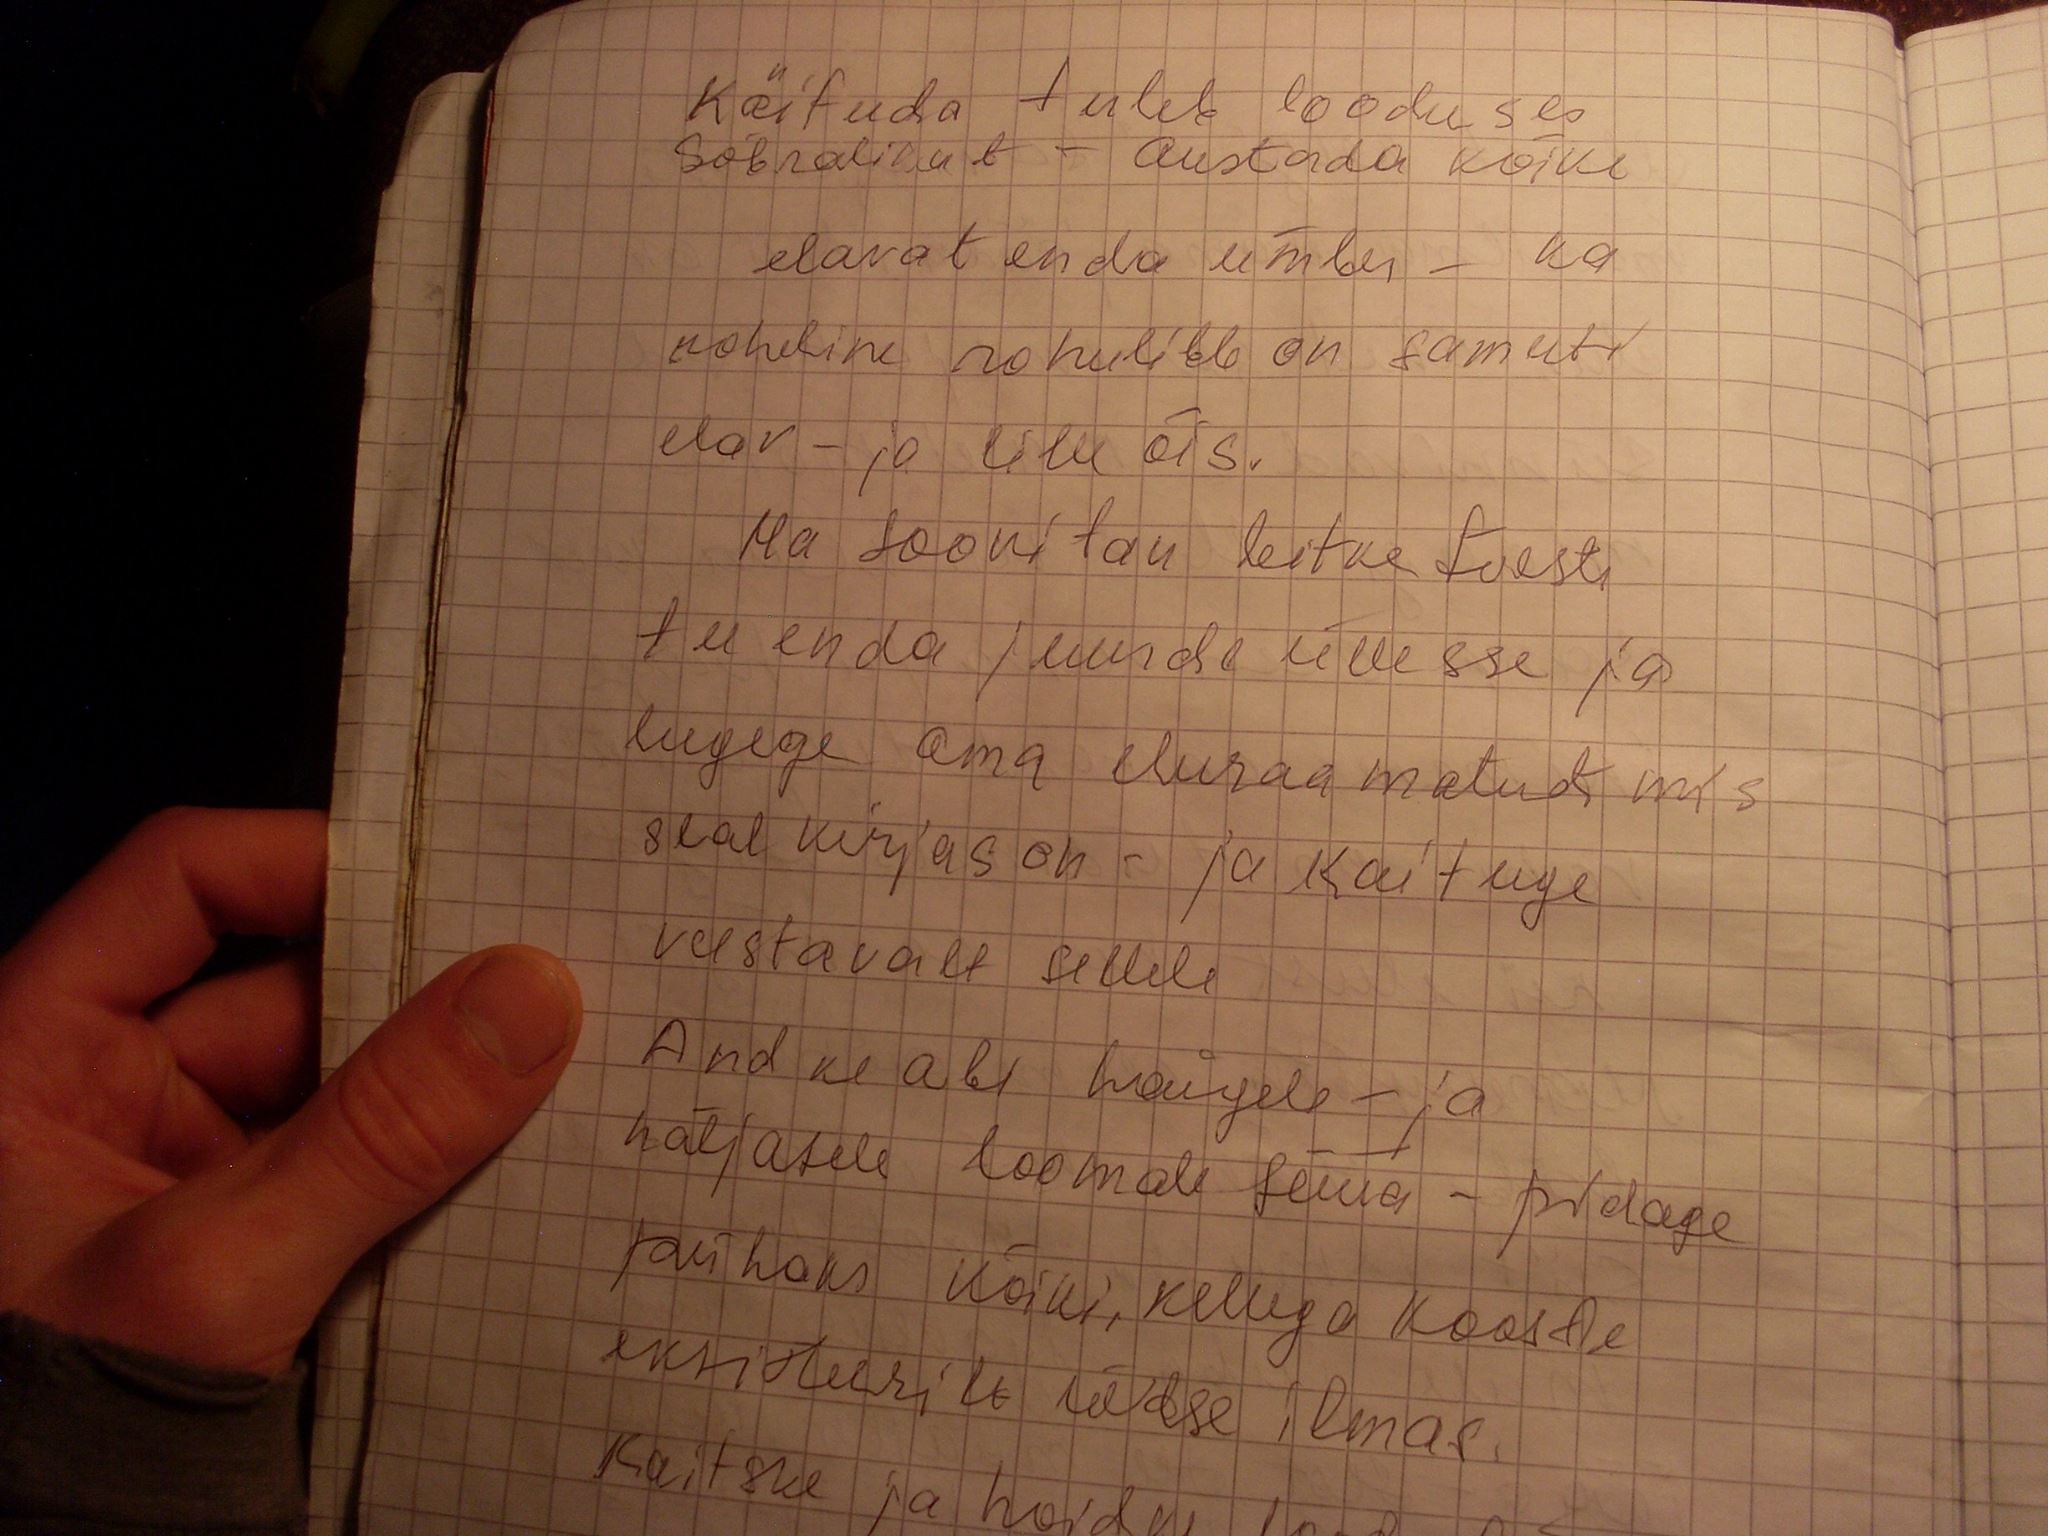 Käituda tuleb looduses
sõbralikult - Austada kõike
elavat enda ümber - ka
roheline rohulible on samuti
elav - ja lille õis.
Ma soovitan leitke tõesti
tee enda juurde üllesse ja
lugege oma eluraamatudt mis
seal kirjas on - ja Kaituge
vastavalt sellele
Andke abi haigele - ja
näljasele loomale süüa - pidage
pühaks kõiki, kellega koos te
eksisteerite üldse ilmas.
Kaitske ja hoidke